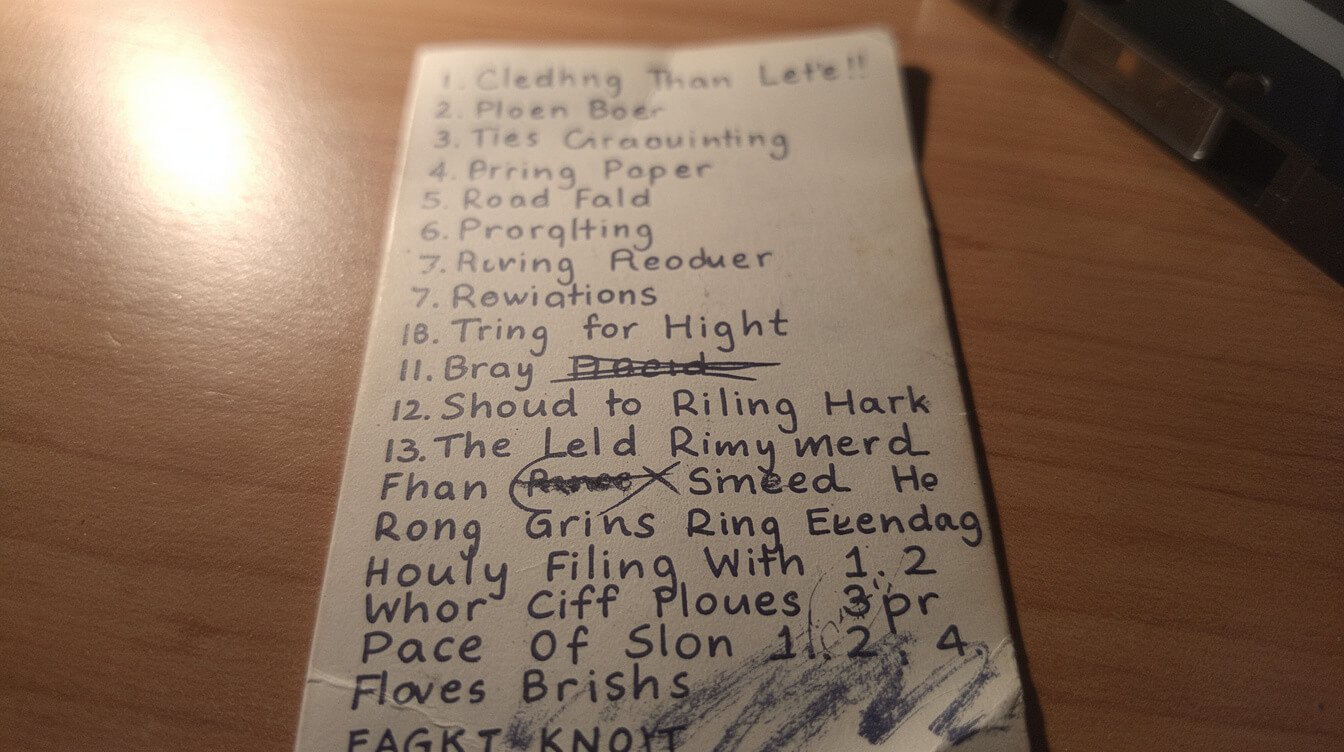 1. Cledhng Than Let'e!!
2. Ploen Boer
3. Ties Graouinting
4. Prring Paper
5. Road Fald
6. Prorqlting
7. Ruring Reoduer
7. Rewiations
18. Tring for Hight
11. Bray
12. Shoud to Riling Hark
13. The Leld Rimy merd
Fhan Smeed He
Rong Grins Ring Ekendag
Houly Filing With 1. 2
Whor Ciff Ploues 3 pr
Pace Of Slon 1. 2. 4.
Floves Brishs
FAGKT KNOIT